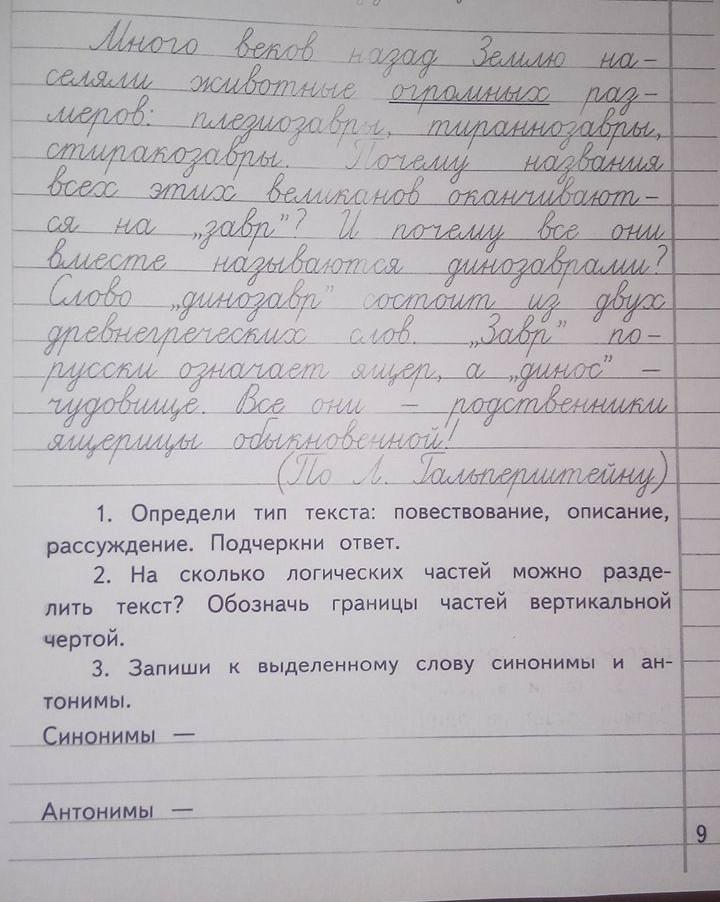 Много веков назад Землю на-
селяли животные огромных раз-
меров: плезиозавры, тираннозавры,
стиракозавры. Почему названия
всех этих великанов оканчивают-
ся на „завр"? И почему все они
вместе называются динозаврами?
Слово „динозавр" состоит из двух
древнегреческих слов. „Завр" по-
русски означает ящер, а „динос" –
чудовище. Все они – родственники
ящерицы обыкновенной!
(По Л. Гальперштейну)
1. Определи тип текста: повествование, описание,
рассуждение. Подчеркни ответ.
2. На сколько логических частей можно разде-
лить текст? Обозначь границы частей вертикальной
чертой.
3. Запиши к выделенному слову синонимы и ан-
тонимы.
Синонимы —
Антонимы —
9